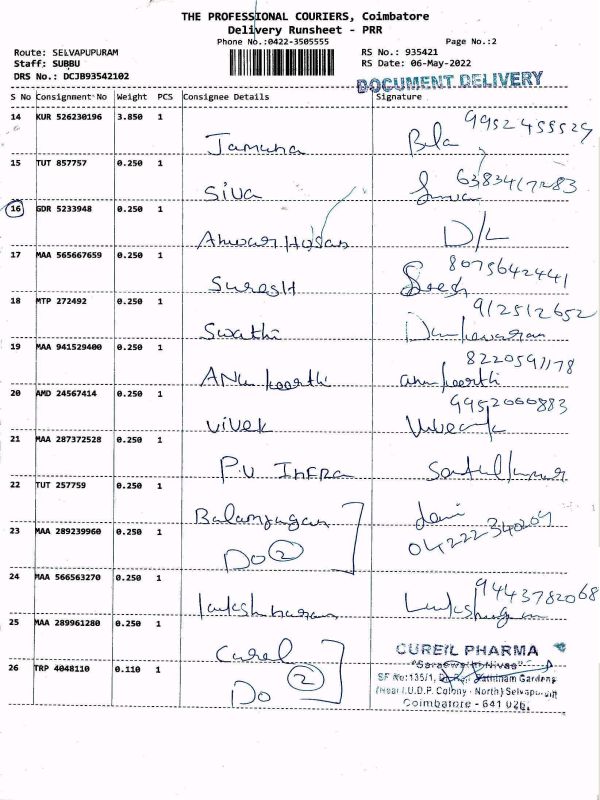 THE PROFESSIONAL COURIERS, Coimbatore
Delivery Runsheet - PRR
Phone No.:0422-3505555 Page No.:2
Route: SELVAPUPURAM RS No.: 935421
Staff: SUBBU RS Date: 06-May-2022
DRS No.: DCJB93542102
DOCUMENT DELIVERY
S No Consignment No Weight PCS Consignee Details Signature
14 KUR 526230196 3.850 1 Jamuna Bela
15 TUT 857757 0.250 1 Siva
16 GDR 5233948 0.250 1 Anwar Husan D/L
17 MAA 565667659 0.250 1 SuresH 8075642441
18 MTP 272492 0.250 1 Swathi 912512652
19 MAA 941529400 0.250 1 ANu keerthi 8220591178 anu keerthi
20 AMD 24567414 0.250 1 ViveK 9952000883
21 MAA 287372528 0.250 1 P.V InFRA
22 TUT 257759 0.250 1 Balamurugan
23 MAA 289239960 0.250 1 Do 2 04222340209
24 MAA 566563270 0.250 1 9443782068
25 MAA 289961280 0.250 1 Curel
26 TRP 4048110 0.110 1 Do 2
CUREIL PHARMA
"Saraswathi Nivas"
SF No:135/1, Rathinam Gardens
(Near T.U.D.P. Colony - North) Selvapuram
Coimbatore - 641 026.